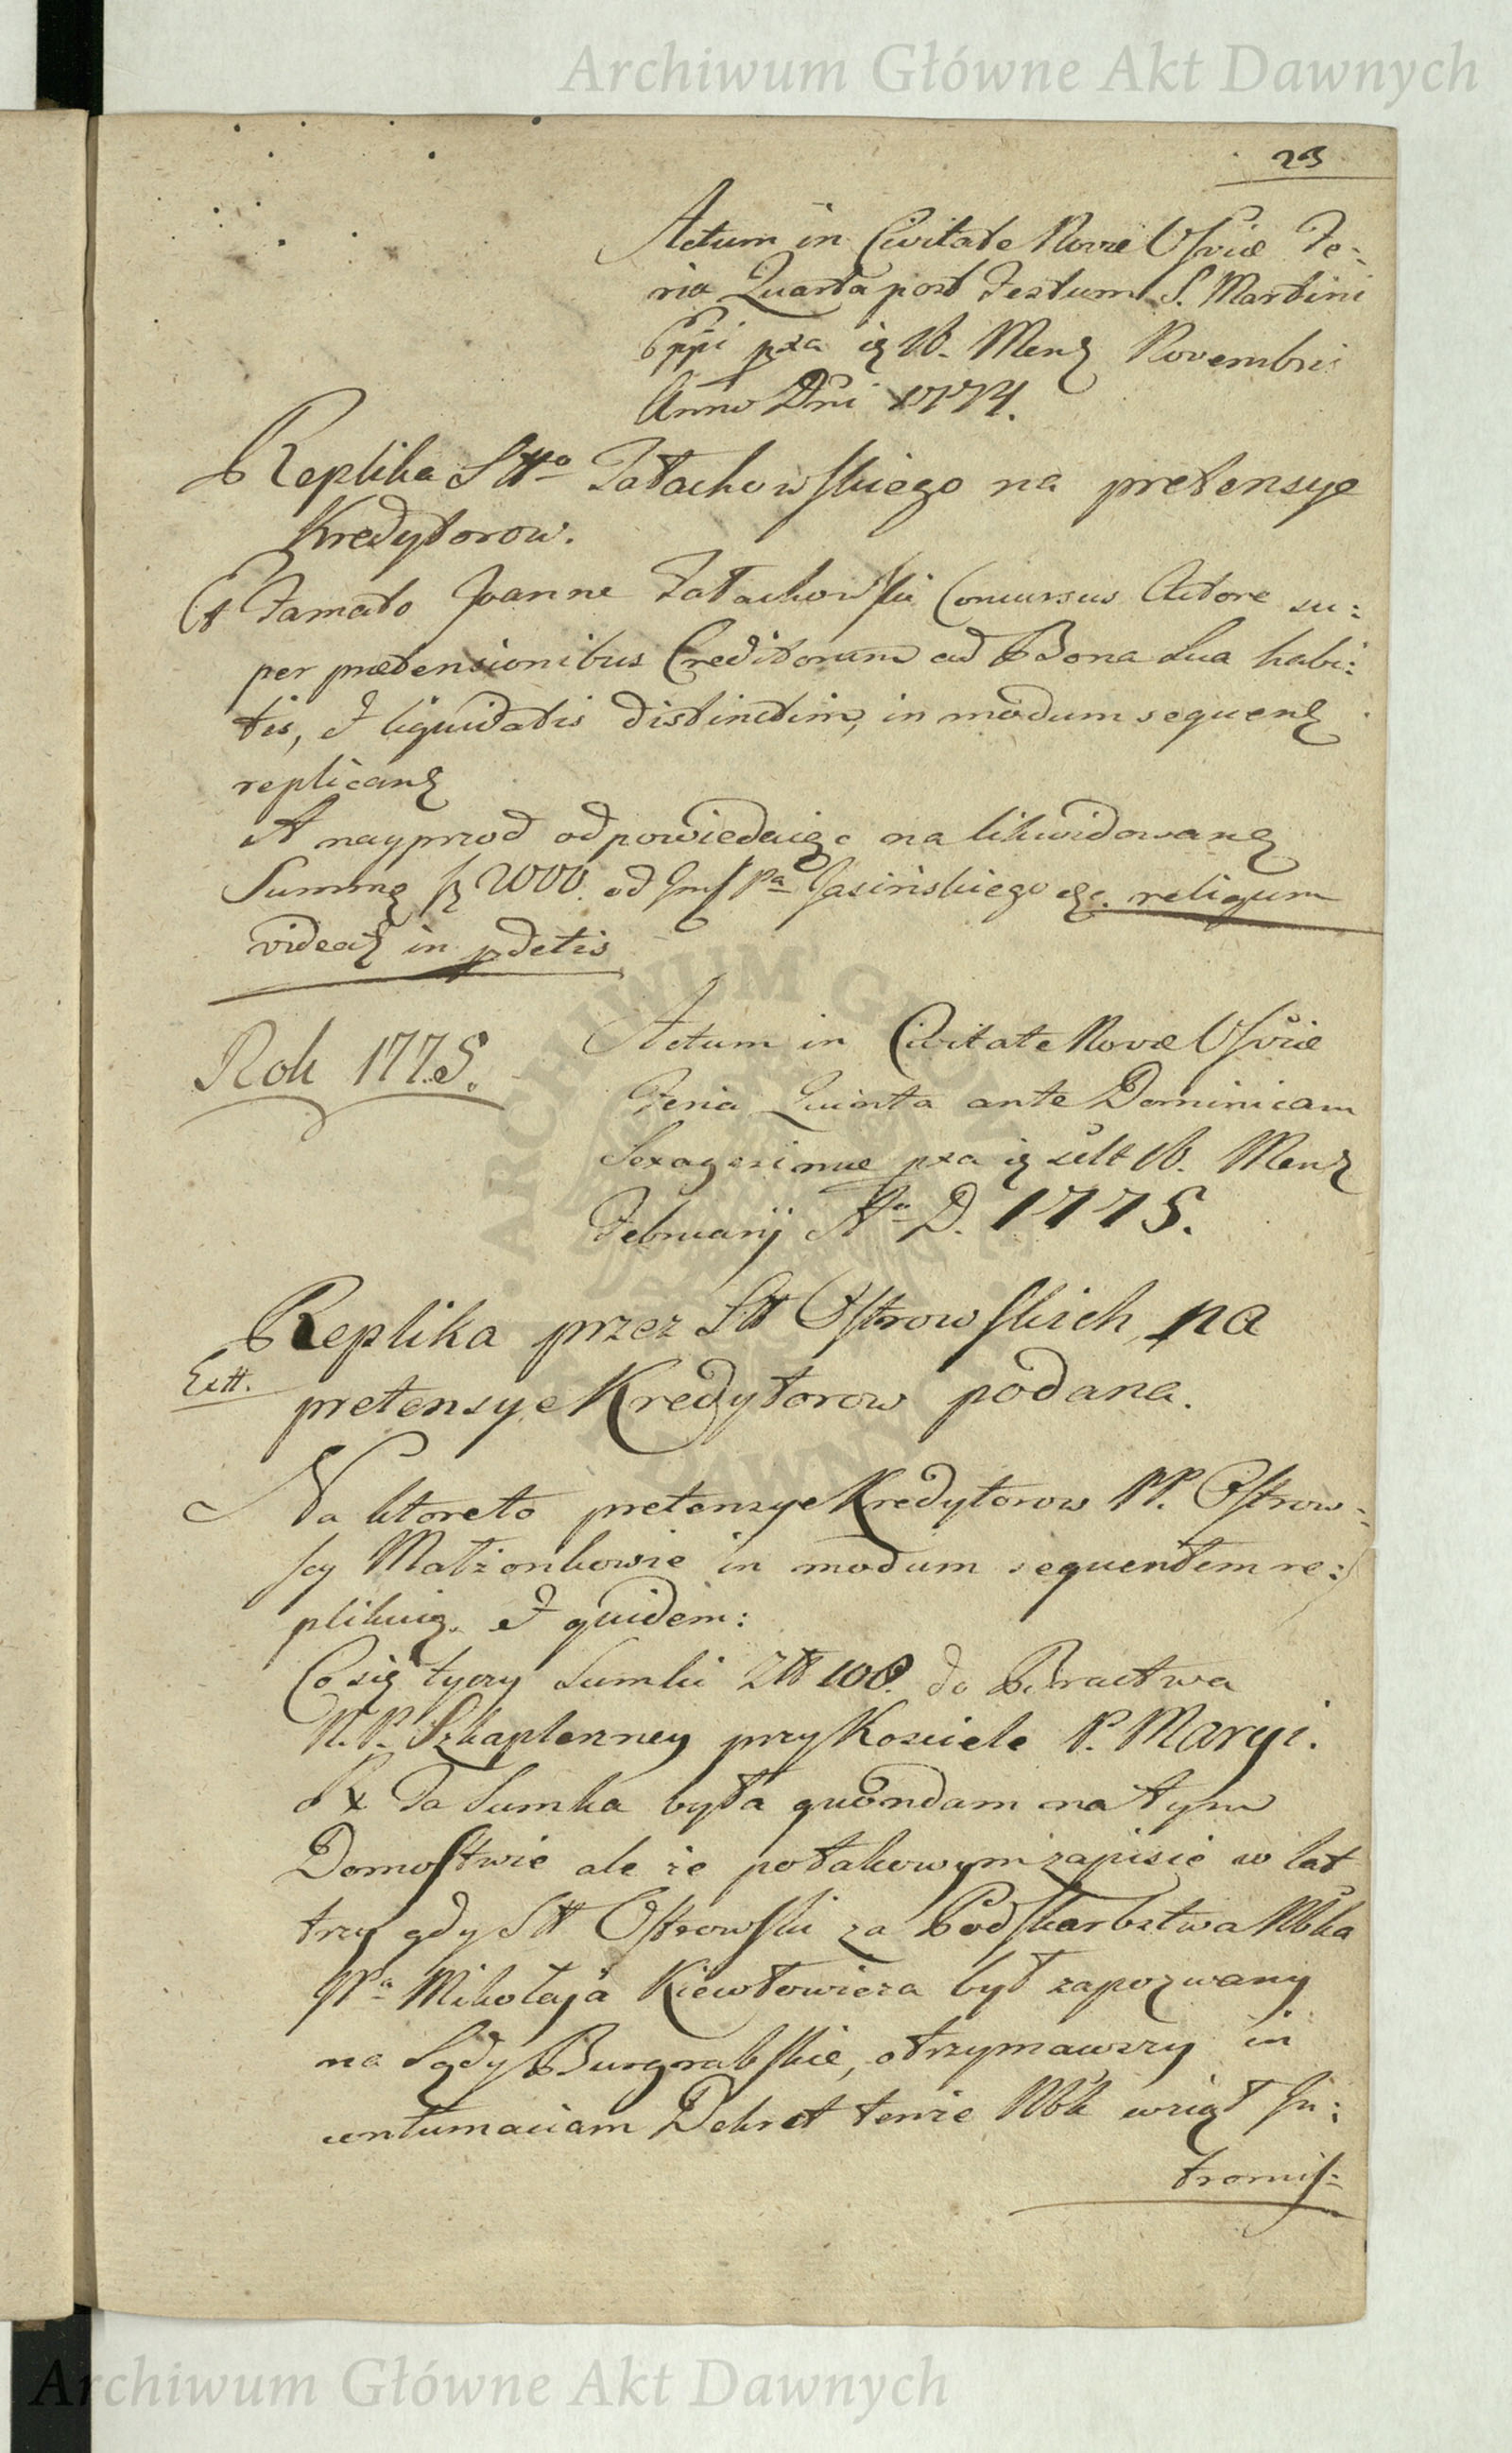 Archiwum Główne Akt Dawnych
23
Actum in Civitate Novæ Usviæ Fe-
ria Quarta post Festum S. Martini
Eppi pxa id est 16. Mens Novembris
Anno Dni 1774.
Replika Stto Załachowskiego na pretensye
Kredytorow.
Et Famato Joanne Załachowski Concursus Actore su:
per prætensionibus Creditorum ad Bona Sua habi:
tis, et liquidatis distinctim, in modum sequens
replicans
A nayprzod odpowiedaiąc na likwidowaną
Summę fz 2000. od Jmś Pa Jasińskiego etc. reliquum
videatz in pdctis
Rok 1775.
Actum in Civitate Novæ Usviæ
Feria Quinta ante Dominicam
Sexagesimæ pxa id est 16. Mens
Februarij Ao D. 1775.
Replika przez Stt Ostrowskich na
Extt.
pretensye Kredytorow podana.
Na ktoreto pretensye Kredytorow PP. Ostrow-
scy Małżonkowie in modum sequentem re:
plikuią. et quidem:
Co się tyczy Sumki Ztt 100. do Bractwa
N. P. Szkaplerzney przy Kosciele P. Maryi.
Rx Ta Sumka była quondam na tym
Domostwie ale ze po takowym zapisie w lat
trzy gdy Stt Ostrowski za Podskarbstwa Nbka
Pa Mikołaja Kiewłowicza był zapozwany
na Sądy Burgrabskie, otrzymawszy in
contumaciam Dekret tenże Nbk wziął In:
tromis:
ARCHIWUM GŁÓWNE AKT DAWNYCH
Archiwum Główne Akt Dawnych